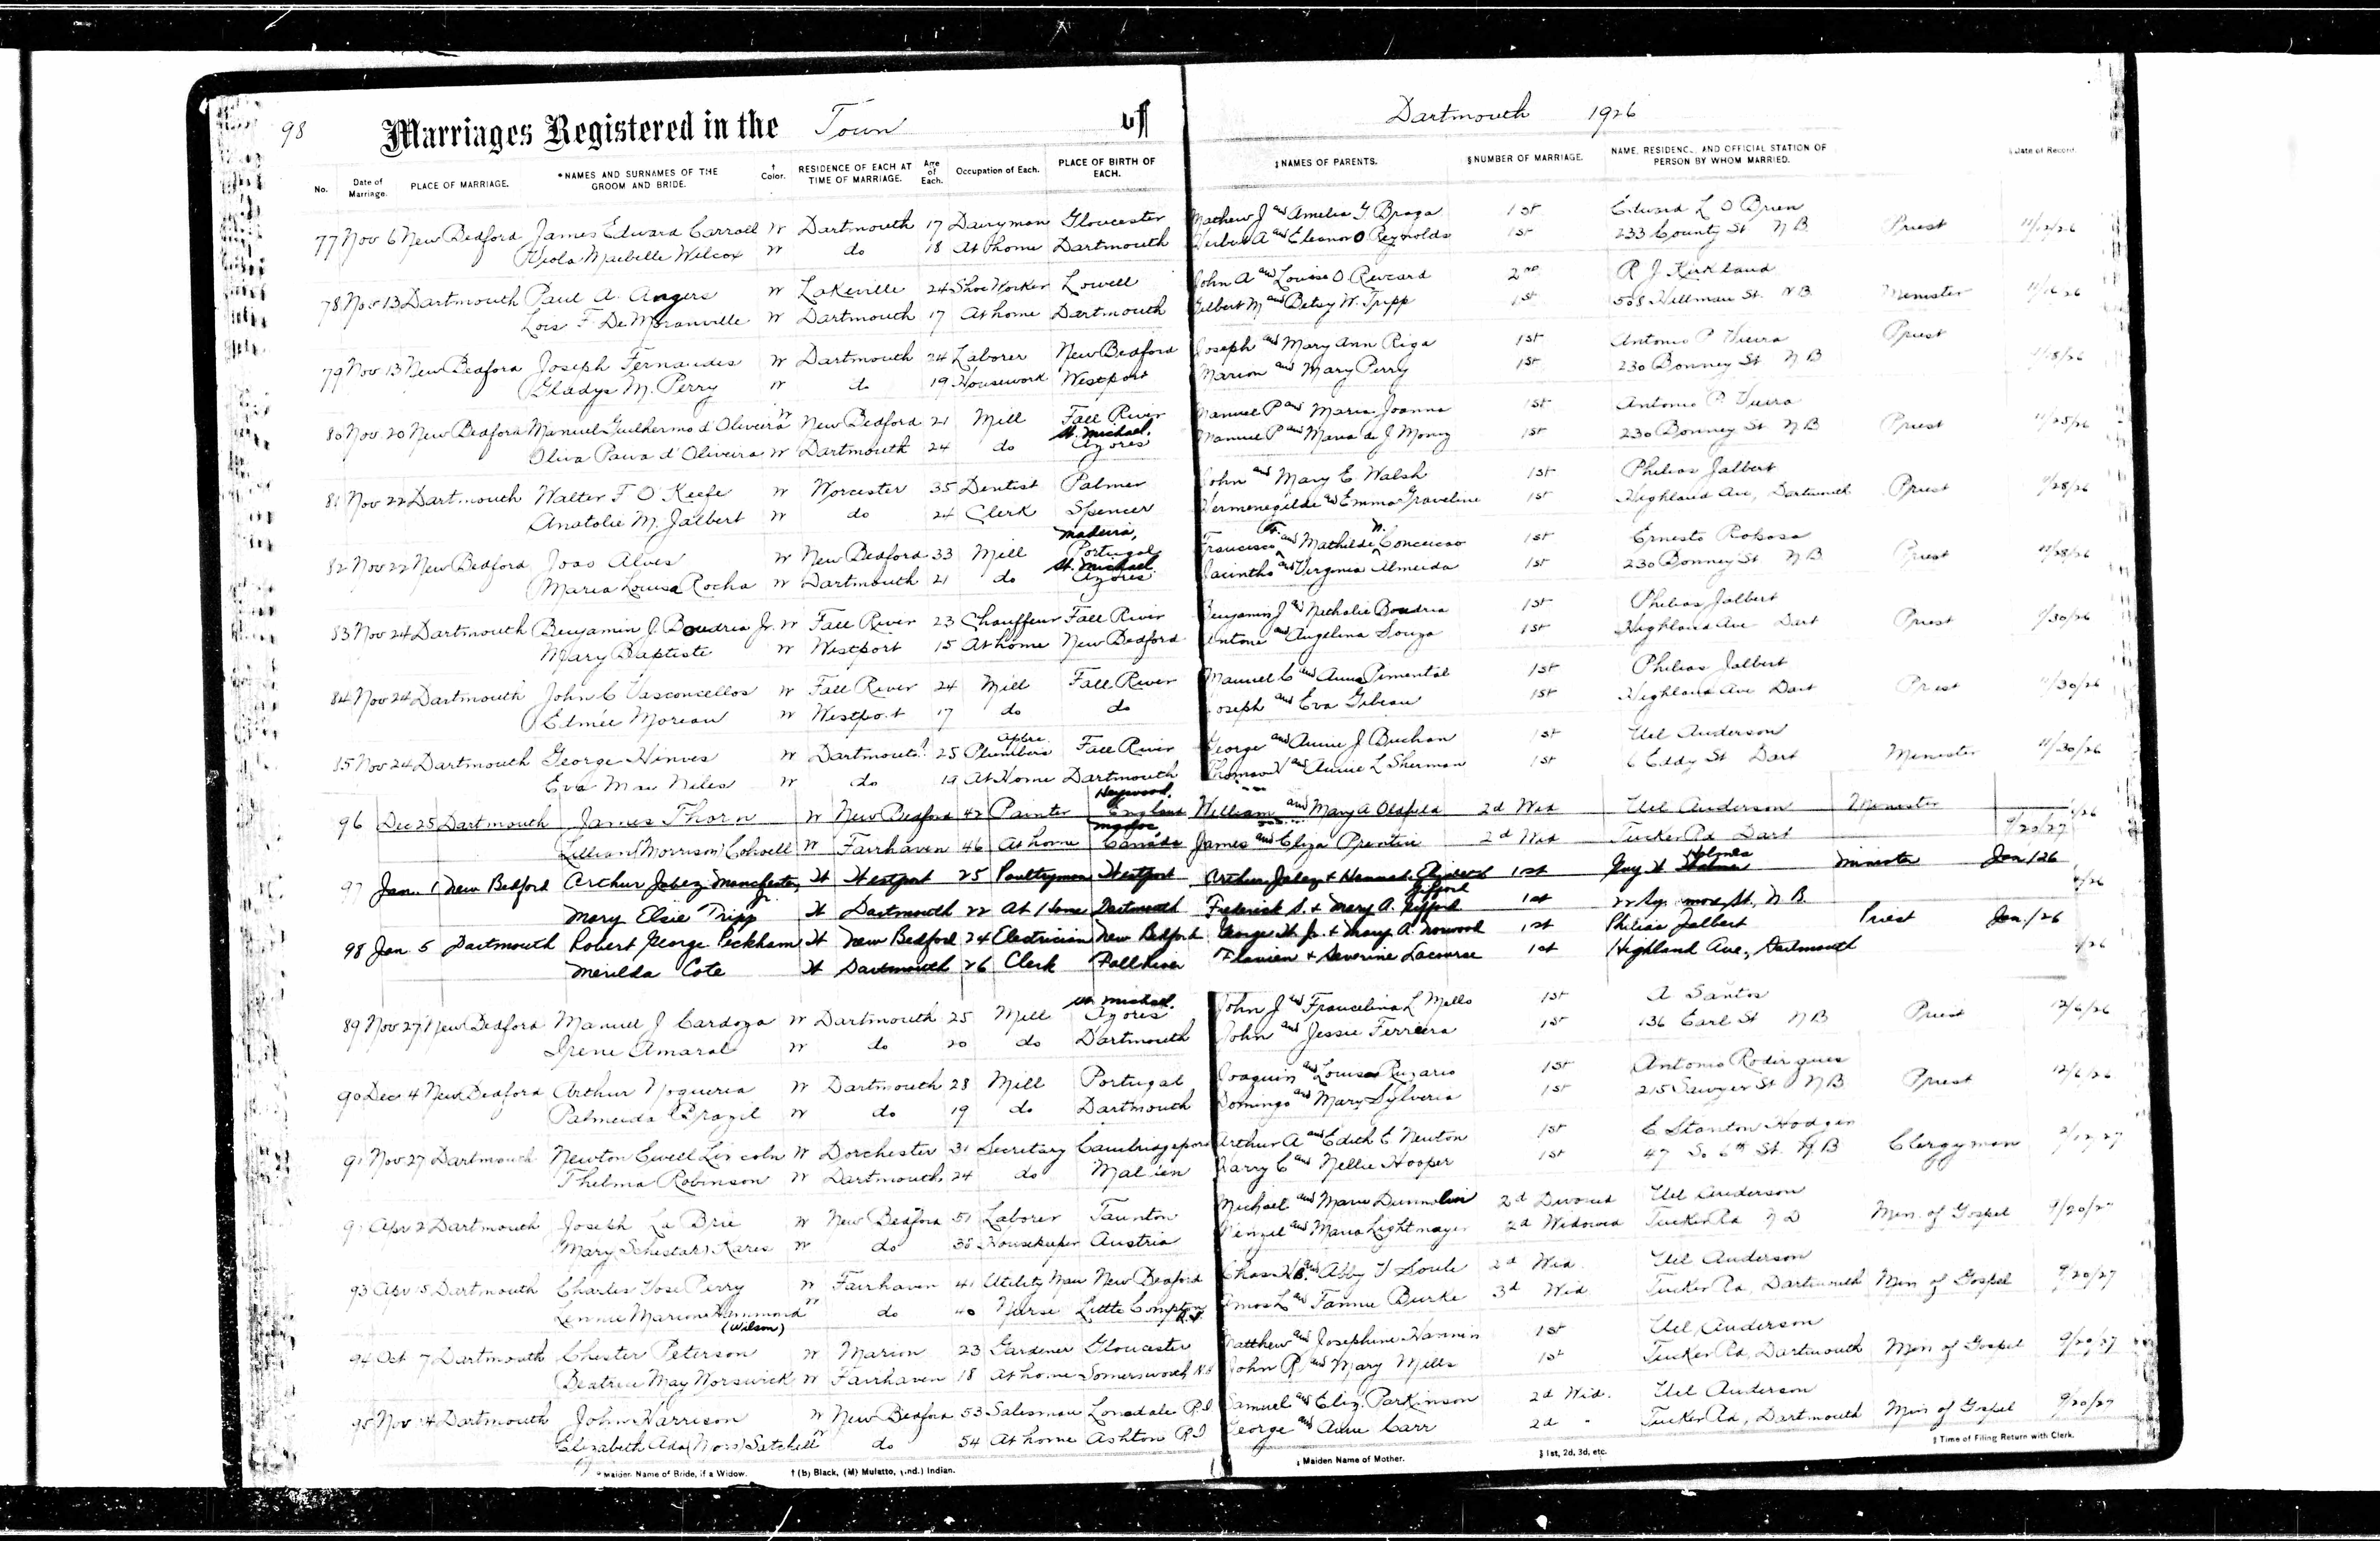 98 Marriages Registered in the Town of Dartmouth 1926
No. Date of Marriage. PLACE OF MARRIAGE. *NAMES AND SURNAMES OF THE GROOM AND BRIDE. † Color. RESIDENCE OF EACH AT TIME OF MARRIAGE. Age of Each. Occupation of Each. PLACE OF BIRTH OF EACH. ‡NAMES OF PARENTS. §NUMBER OF MARRIAGE. NAME, RESIDENCE, AND OFFICIAL STATION OF PERSON BY WHOM MARRIED. Date of Record.
77 Nov 6 New Bedford James Edward Carroll W Dartmouth 17 Dairyman Gloucester Mathew J and Amelia G Braga 1st Edward L O Brien
Maebelle Wilcox W do 18 At home Dartmouth Herbert A and Eleanor O Reynolds 1st 233 County St N B Priest 11/12/26
78 Nov 13 Dartmouth Paul A. Angers W Lakeville 24 Shoe Worker Lowell John A and Louise O Revcard 2nd R J Kirkland
Lois F DeMoranville W Dartmouth 17 At home Dartmouth Gilbert M and Betsy W. Tripp 1st 508 Hillman St. N B. Minister 11/16/26
79 Nov 13 New Bedford Joseph Fernandes W Dartmouth 24 Laborer New Bedford Joseph and Mary Ann Riga 1st Antonio P Vieira Priest
Gladys M. Perry W do 19 Housework Westport Marion and Mary Perry 1st 230 Bonney St N B 11/18/26
80 Nov 20 New Bedford Manuel Guilhermo d'Oliveira W New Bedford 21 Mill Fall River Manuel P and Maria Joanna 1st Antonio P. Vieira
Oliva Paiva d'Oliveira W Dartmouth 24 do St. Michael Azores Manuel P and Maria de J Moniz 1st 230 Bonney St N B Priest 11/25/26
81 Nov 22 Dartmouth Walter F O'Keefe W Worcester 35 Dentist Palmer John and Mary E Walsh 1st Philias Jalbert
Anatolie M. Jalbert W do 24 Clerk Spencer Hermenegilde and Emma Graveline 1st Highland Ave, Dartmouth Priest 11/28/26
82 Nov 22 New Bedford Joao Alves W New Bedford 33 Mill Madeira, Portugal Francisco F. and Mathilde N. Conceicao 1st Ernesto Raposa
Maria Louisa Rocha W Dartmouth 21 do St. Michael Azores Jacintho and Virginia Almeida 1st 230 Bonney St N B Priest 11/28/26
83 Nov 24 Dartmouth Benjamin J. Boudria Jr. W Fall River 23 Chauffeur Fall River Benjamin J and Nathalie Boudria 1st Philias Jalbert
Mary Baptiste W Westport 15 At home New Bedford Antone and Angelina Souza 1st Highland Ave Dart Priest 11/30/26
84 Nov 24 Dartmouth John C Vasconcellos W Fall River 24 Mill Fall River Manuel C and Anna Pimental 1st Philias Jalbert
Edmée Moreau W Westport 17 do do Joseph and Eva Gibeau 1st Highland Ave Dart Priest 11/30/26
85 Nov 24 Dartmouth George Hinves W Dartmouth 25 Plumbers Fall River George and Annie J Buchan 1st Uel Anderson
Eva Mae Niles W do 19 At Home Dartmouth Thomas and Annie L Sherman 1st 6 Eddy St Dart Minister 11/30/26
96 Dec 25 Dartmouth James Thorn W New Bedford 42 Painter Heywood, England William and Mary A Oldfield 2d Wid Uel Anderson Minister
Lillian (Morrison) Colwell W Fairhaven 46 At home Canada James and Eliza Prentice 2d Wid Tucker Rd Dart 9/20/27
97 Jan. 1 New Bedford Arthur Jabez Manchester, Jr. W Westport 25 Poultryman Westport Arthur Jabez & Hannah Elizabeth Gifford 1st Guy W Holmes Minister Jan 1 26
Mary Elsie Tripp W Dartmouth 22 At Home Dartmouth Frederick S. & Mary A. Gifford 1st St. N B.
98 Jan. 5 Dartmouth Robert George Peckham W New Bedford 24 Electrician New Bedford George W Jr. & Mary A. Norwood 1st Philias Jalbert Priest Jan. /26
Merilda Cote W Dartmouth 26 Clerk Fall River Flavien & Severine Lacourse 1st Highland Ave., Dartmouth
89 Nov 27 New Bedford Manuel J Cardoza W Dartmouth 25 Mill St. Michael Azores John J and Francelina L Mello 1st A Santos
Irene Amaral W do 20 do Dartmouth John and Jessie Ferreira 1st 136 Earl St N B Priest 12/6/26
90 Dec 4 New Bedford Arthur Nogueria W Dartmouth 28 Mill Portugal Joaquin and Louisa Ruzario 1st Antonio Rodrigues
Palmeida Brazil W do 19 do Dartmouth Domingo and Mary Sylveria 1st 215 Sawyer St N B Priest 12/6/26
91 Nov 27 Dartmouth Newton Ewell Lincoln W Dorchester 31 Secretary Cambridgeport Arthur A and Edith E Newton 1st E Stanton Hodgin
Thelma Robinson W Dartmouth 24 do Malden Harry C and Nellie Hooper 1st 47 So 6th St. N B Clergyman 2/12/27
9 Apr 2 Dartmouth Joseph La Brie W New Bedford 51 Laborer Taunton Michael and Marie Dumolin 2d Divorced Uel Anderson
Mary (Schestak) Kares W do 38 Housekeeper Austria Wenzel and Maria Lightmayer 2d Widowed Tucker Rd N D Min. of Gospel 9/20/27
93 Apr 15 Dartmouth Charles Vose Perry W Fairhaven 41 Utility Man New Bedford Chas H B. and Abby T Soule 2d Wid. Uel Anderson
Lennie Marion Hammond (Wilson) W do 40 Nurse Little Compton R.I. Amos L and Fannie Burke 3d Wid Tucker Rd, Dartmouth Min of Gospel 9/20/27
94 Oct 7 Dartmouth Chester Peterson W Marion 23 Gardener Gloucester Matthew and Josephine Hannin 1st Uel Anderson
Beatrice May Norswick W Fairhaven 18 At home Somersworth N H John R and Mary Mills 1st Tucker Rd, Dartmouth Min of Gospel 9/20/27
95 Nov 14 Dartmouth John Harrison W New Bedford 53 Salesman Lonsdale R I Samuel and Eliz. Parkinson 2d Wid. Uel Anderson
Elizabeth Ada (Moss) Satchell W do 54 At home Ashton R I George and Annie Carr 2d " Tucker Rd, Dartmouth Min of Gospel 9/20/27
* Maiden Name of Bride, if a Widow. † (b) Black, (M) Mulatto, (Ind.) Indian. ‡ Maiden Name of Mother. § 1st, 2d, 3d, etc. ‖ Time of Filing Return with Clerk.